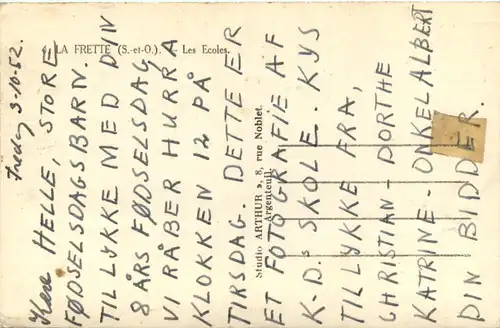 LA FRETTE (S.-et-O.). Les Ecoles.
Studio ARTHUR », 8, rue Noblet.
Argenteuil.
Fredag 3-10-52.
Kære HELLE, STORE
FØDSELSDAGSBARN.
TILLYKKE MED DIN
8 ÅRS FØDSELSDAG
VI RÅBER HURRA
KLOKKEN 12 PÅ
TIRSDAG. DETTE ER
ET FOTOGRAFIE AF
K-D.s SKOLE. KYS
TILLYKKE FRA,
CHRISTIAN- DORTHE
KATRINE- ONKELALBERT
DIN BIDDER.